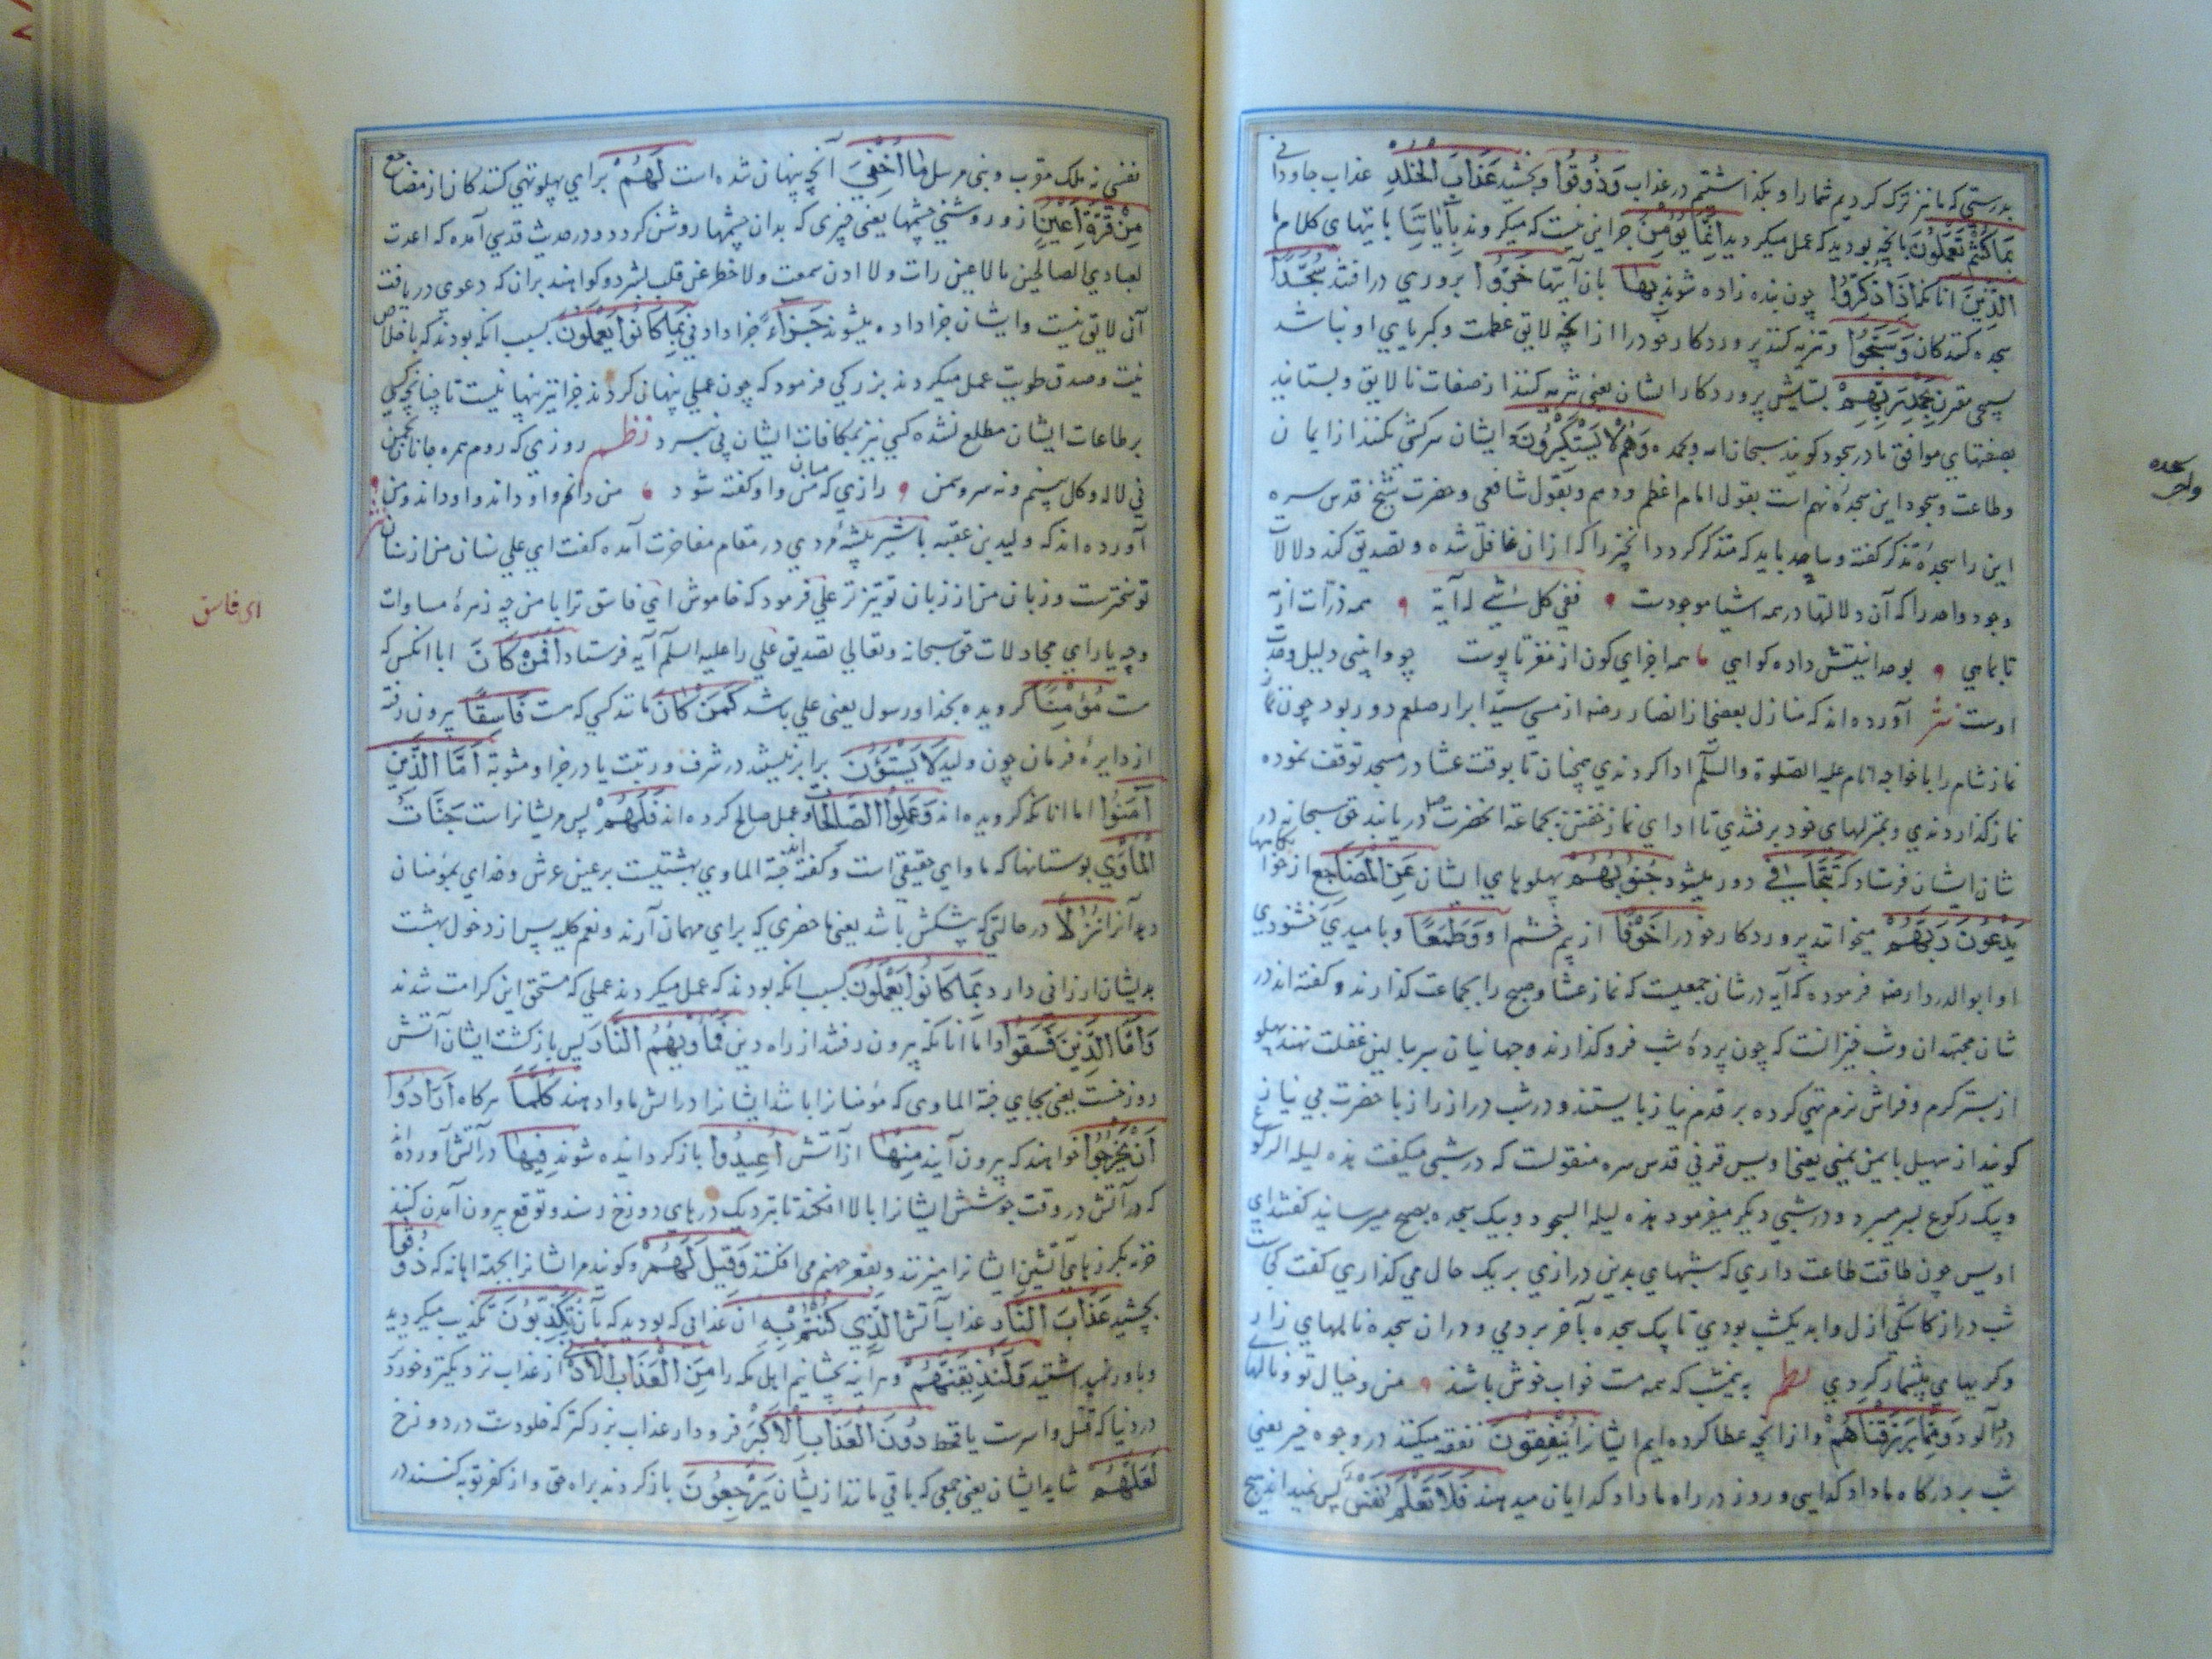 بدرستی که ما نیز ترک کردیم شما را و بگذاشتیم در عذاب وَذُوقُوا و بچشید عَذَابَ الْخُلْدِ عذاب جاودانی
بِمَا كُنْتُمْ تَعْمَلُونَ بانچه بودید که عمل میکردید اِنَّمَا يُؤْمِنُ جز این نیست که میکروند بِآيَاتِنَا بایتهای کلام ما
الَّذِينَ انانکه اِذَا ذُكِّرُوا چون پند داده شوند بِهَا بان آیتها خَرُّوا بروی درافتند سُجَّدًا
سجده کنندکان وَسَبَّحُوا و تنزیه کنند پروردکار خود را از انچه لایق عظمت و کبریایی او نباشد
بِحَمْدِ رَبِّهِمْ بستایش پروردکار ایشان یعنی تنزیه کنند از صفات نالایق و بستایند
بصفتهای موافق یا در سجود کویند سبحان الله و بحمده وَهُمْ لَا يَسْتَكْبِرُونَ و ایشان سرکشی نکنند از ایمان
و طاعت و سجود این سجدۀ نهم است بقول امام اعظم و دهم و بقول شافعی و حضرت شیخ قدس سره
این را سجدۀ تذکر کفته و ساجد باید که متذکر کردد انچیز را که ازان غافل شده و تصدیق کند دلالات
وجود واحد را که آن دلالتها در همه اشیا موجودست ففی کل شیٔ له آیة همه ذرات از مه
تا بماهی بوحدانیتش داده کواهی همه اجزای کون از مغز تا پوست چو وا بینی دلیل وحدت
اوست نثر آورده اند که منازل بعضی از انصار رضه از مسجد سید ابرار صلعم دور بود چون نماز
نماز شام را با خواجه انام علیه الصلوة والسلم ادا کردندی همچنان تا بوقت عشا در مسجد توقف نموده
نماز کذاردندی و بمنزلهای خود نرفتندی تا ادای نماز خفتن بجماعة انحضرت صلی دریابند حق سبحانه در
شان ایشان فرستاد که تَتَجَافَى دور میشود جُنُوبُهُمْ پهلوهای ایشان عَنِ الْمَضَاجِعِ از خوابکاهها
يَدْعُونَ رَبَّهُمْ میخوانند پروردکار خود را خَوْفًا از بیم خشم او وَطَمَعًا و بامید خشنودی
او ابوالدردا رضه فرموده که آیه در شان جمعیست که نماز عشا و صبح را بجماعت کذارند و کفته اند در
شان مجتهدان و شب خیزانست که چون پردۀ شب فروکذارند و جهانیان سر ببالین غفلت نهند پهلو
از بستر کرم و فراش نرم تهی کرده بر قدم نیاز بایستند و در شب دراز راز با حضرت بی نیاز
کویند از سهیل با یمن یمنی یعنی اویس قرنی قدس سره منقولست که در شبی میکفت هذه لیلة الرکوع
و بیک رکوع بسر میبرد و در شبی دیکر میفرمود هذه لیلة السجود و بیک سجده بصبح میرسانید کفتند ای
اویس چون طاقت طاعت داری که شبهای بدین درازی بر یک حال می کذاری کفت کجاست
شب دراز کاشکی ازل و ابد یکشب بودی تا بیک سجده بآخر بردمی و دران سجده نالهای زار
و کریهای بیشمار کردی نظم به نیمشب که همه مست خواب خوش باشند من و خیال تو و نالهای
درد آلود وَمِمَّا رَزَقْنَاهُمْ و از انچه عطا کرده ایم ایشانرا يُنْفِقُونَ نفقه میکنند در وجوه خیر یعنی
شب بر درکاه ما داد کدایی و روز در راه ما داد کدایان میدهند فَلَا تَعْلَمُ نَفْسٌ پس نمیداند هیچ
سجده
نفسی نه ملک مقرب و نبی مرسل مَا اُخْفِيَ آنچه پنهان شده است لَهُمْ برای پهلو تهی کنندکان از مضاجع
مِنْ قُرَّةِ اَعْيُنٍ از روشنی چشمها یعنی چیزی که بدان چشمها روشن کردد و در حدیث قدسی آمده که اعدت
لعبادی الصالحین ما لا عین رات ولا اذن سمعت ولا خطر علی قلب بشر دوکواهند بران که دعوی دریافت
آن لایق نیست و ایشان جزا داده میشوند جَزَاءً جزا دادنی بِمَا كَانُوا يَعْمَلُونَ بسبب انکه بودند که باخلاص
نیت و صدق طویت عمل میکردند بزرکی فرمود که چون عملی پنهانی کردند جزا نیز پنهانیست تا چنانچه کسی
بر طاعات ایشان مطلع نشده کسی نیز بمکافات ایشان پی نبرد نظم روزی که روم همره جانان بچمن
نی لاله و کل بینم و نه سرو سمن رازی که میان من و او کفته شود من دانم و او داند و او داند و من
آورده اند که ولید بن عقبه با شیر بیشۀ مردی در مقام مفاخرت آمده کفت ای علی سنان من از سنان
تو سختترست و زبان من از زبان تو تیزتر علی فرمود که خاموش ای فاسق ترا با من چه زهرۀ مساوات
و چه یارای مجادلات حق سبحانه و تعالی تصدیق علی را علیه السلم آیه فرستاد اَفَمَنْ كَانَ ایا انکس که
هست مُؤْمِنًا کرویده بخدا و رسول یعنی علی باشد كَمَنْ كَانَ مانند کسی که هست فَاسِقًا بیرون رفته
از دایرۀ فرمان چون ولید لَا يَسْتَوُونَ برابر نیستند در شرف و رتبت یا در جزا و مثوبة اَمَّا الَّذِينَ
آمَنُوا اما انانکه کرویده اند وَعَمِلُوا الصَّالِحَاتِ و عمل صالح کرده اند فَلَهُمْ پس مر ایشانراست جَنَّاتُ
الْمَأْوَى بوستانها که ماوای حقیقی است و کفته اند جنة الماوی بهشتیست بر عین عرش و خدای بمؤمنان
دهد آنرا نُزُلًا در حالتی که پیشکش باشد یعنی ماحضری که برای مهمان آرند و نعم کلیه پس از دخول بهشت
بدیشان ارزانی دارد بِمَا كَانُوا يَعْمَلُونَ بسبب انکه بودند که عمل میکردند عملی که مستحق این کرامت شدند
وَاَمَّا الَّذِينَ فَسَقُوا و اما انانکه بیرون رفتند از راه دین فَمَأْوَيهُمُ النَّارُ پس بازکشت ایشان آتش
دوزخست یعنی بجای جنة الماوی که مؤمنانرا باشد ایشانرا در اتش ماوا دهند كُلَّمَا هرکاه اَرَادُوا
اَنْ يَخْرُجُوا خواهند که بیرون آیند مِنْهَا از آتش اُعِيدُوا باز کردانیده شوند فِيهَا در آتش آورده اند
که آتش در وقت جوشش ایشانرا ببالا افکند تا بنزدیک درهای دوزخ رسند و توقع بیرون آمدن کنند
خزنه بکرزهای آتشین ایشانرا میزنند و بقعر جهنم می افکنند وَقِيلَ لَهُمْ و کویند مر ایشانرا بجهة اهانه که ذُوقُوا
بچشید عَذَابَ النَّارِ عذاب آتش الَّذِي كُنْتُمْ بِهِ ان عذابی که بودید که بآن تُكَذِّبُونَ تکذیب میکردید
و باور نمیداشتید وَلَنُذِيقَنَّهُمْ و هر آینه بچشانیم اهل مکه را مِنَ الْعَذَابِ الْاَدْنَى از عذاب نزدیکتر و خوردتر
در دنیا که قتل و اسرست یا قحط دُونَ الْعَذَابِ الْاَكْبَرِ فرود از عذاب بزرکتر که خلودست در دوزخ
لَعَلَّهُمْ شاید ایشان یعنی جمعی که باقی مانند از ایشان يَرْجِعُونَ باز کردند براه حق و از کفر توبه کنند در
ای فاسق